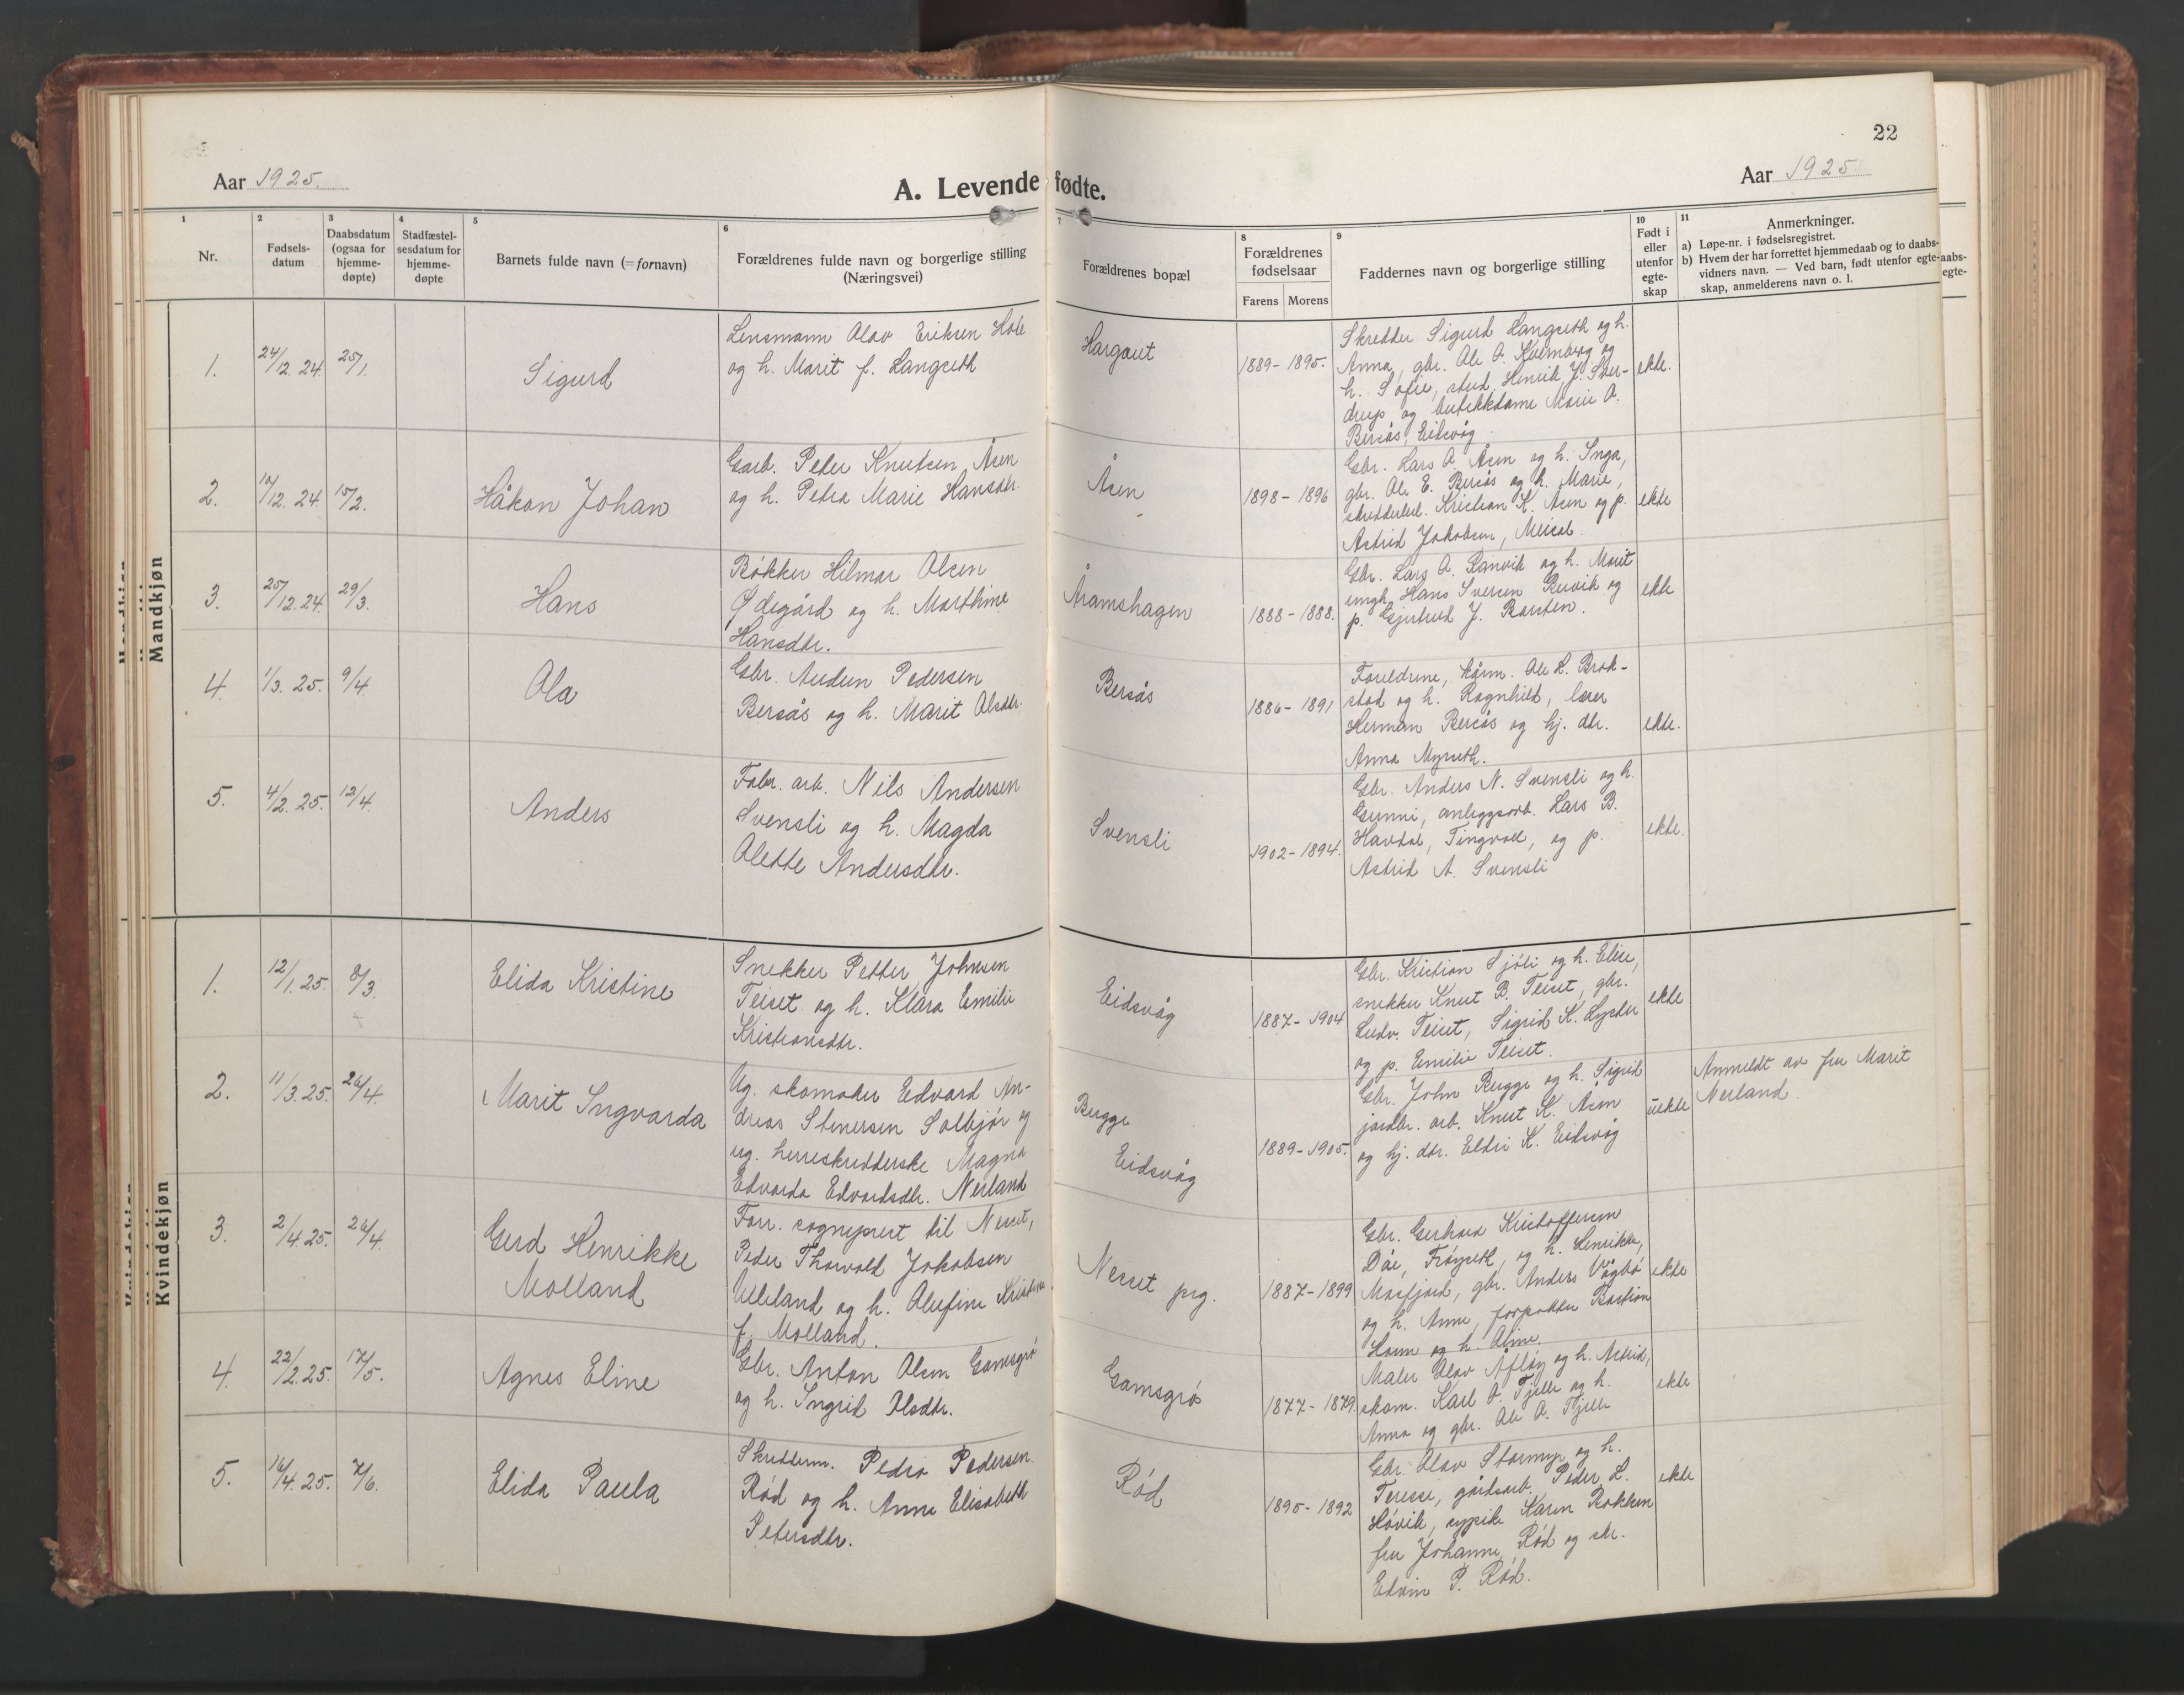 22
Aar 1925.
A. Levende fødte.
Aar 1925
1 2 3 4 5 6 7 8 9 10 11
Nr.
Fødsels-
datum
Daabsdatum
(ogsaa for
hjemme-
døpte)
Stadfæstel-
sesdatum for
hjemme-
døpte
Barnets fulde navn (= fornavn)
Forældrenes fulde navn og borgerlige stilling
(Næringsvei)
Forældrenes bopæl
Forældrenes
fødselsaar
Farens Morens
Faddernes navn og borgerlige stilling
Født i
eller
utenfor
egte-
skap
Anmerkninger.
a) Løpe-nr. i fødselsregistret.
b) Hvem der har forrettet hjemmedaab og to daabs-
vidners navn. — Ved barn, født utenfor egte-
skap, anmelderens navn o. l.
aabs-
egte-
Mandkjøn
1. 24/12. 24. 25/1. Sigurd
Lensmann Olav Eriksen Hole
og h. Marit f. Langseth
Hargaut
1889 - 1895.
Skredder Sigurd Langseth og h.
Anna, gbr. Ole O. Kvernberg og
h. Sofie, stud. Henrik J. Sver-
drup og butikkdame Marie O.
Bersås, Eidsvåg
ekte.
2. 10/12. 24. 15/2. Håkon Johan
Garb. Peder Knutsen Åsen
og h. Petra Marie Hansdtr.
Åsen
1898 - 1896
Gbr. Lars A. Åsen og h. Inga,
gbr. Ole E. Bersås og h. Marie,
skredderlærl. Kristian K. Åsen og p.
Astrid Jakobsen, Meisal
ekte
3. 25/12. 24. 29/3. Hans
Bøkker Hilmar Olsen
Ødegård og h. Marthine
Hansdtr.
Åramshagen
1888 - 1888.
Gbr. Lars A. Ranvik og h. Marit
ungk. Hans Iversen Ruvik og
p. Gjertrud J. Karsten.
ekte
4. 1/3. 25. 9/4 Ola
Gbr. Audun Pedersen
Bersås og h. Marit Olsdtr.
Bersås
1886 - 1891
Foreldrene, kårm. Ole L. Brok-
stad og h. Ragnhild, lærer
Herman Bersås og hj. dtr.
Anna Myrseth.
ekte.
5. 4/2. 25. 12/4. Anders
Fabr. arb. Nils Andersen
Svensli og h. Magda
Olette Andersdtr.
Svensli
1902 - 1894.
Gbr. Anders N. Svensli og h.
Gunni, anleggsarb. Lars B.
Havdal, Tingvoll, og p.
Astrid A. Svensli
ekte.
Kvindekjøn
1. 12/1. 25. 8/3. Elida Kristine
Snekker Petter Johnsen
Teiset og h. Klara Emilie
Kristiansdtr.
Eidsvåg
1887 - 1904
Gbr. Kristian Sjøli og h. Elise,
snekker Knut B. Teiset, gbr.
Ludv. Teiset, Sigrid K. Lyster
og p. Emilie Teiset.
ekte
2. 11/3. 25. 26/4. Marit Ingvarda
Ug. skomaker Edvard An-
dreas Stenersen Solbjør og
ug. herreskredderske Magna
Edvarda Edvardsdtr. Nerland
Bugge
Eidsvåg
1889 - 1905.
Gbr. John Bugge og h. Sigrid
jordbr. arb. Knut K. Åsen
og hj. dtr. Eldri K. Eidsvåg
uekte
Anmeldt av fru Marit
Nerland.
3. 2/4. 25. 26/4. Gerd Henrikke
Molland
Forr. sogneprest til Nesset,
Peder Thorvald Jakobsen
Ulleland og h. Olufine Kristine
f. Molland.
Nesset prg.
1887 - 1899
Gbr. Gerhard Kristoffersen
Døe, Frøyseth, og h. Henrikke,
Masfjord, gbr. Anders Vågbø
og h. Anne, forpakter Bastian
Horn og h. Oline.
ekte
4. 22/2. 25. 17/5. Agnes Eline
Gbr. Anton Olsen Gamsgrø
og h. Ingrid Olsdtr.
Gamsgrø
1877 - 1879.
Maler Olav Åfløy og h. Astrid,
skom. Karl O. Tjelle og h.
Anna og gbr. Ole O. Tjelle
ekte
5. 16/4. 25. 7/6. Elida Paula
Skredderm. Peder Pedersen
Rød og h. Anne Elisabeth
Petersdtr.
Rød
1895 - 1892
Gbr. Olav Stormyr og h.
Teresse, gårdsarb. Peder L.
Høvik, sypike Karen Bokken
fru Johanne Rød og skr.
Edvin P. Rød.
ekte